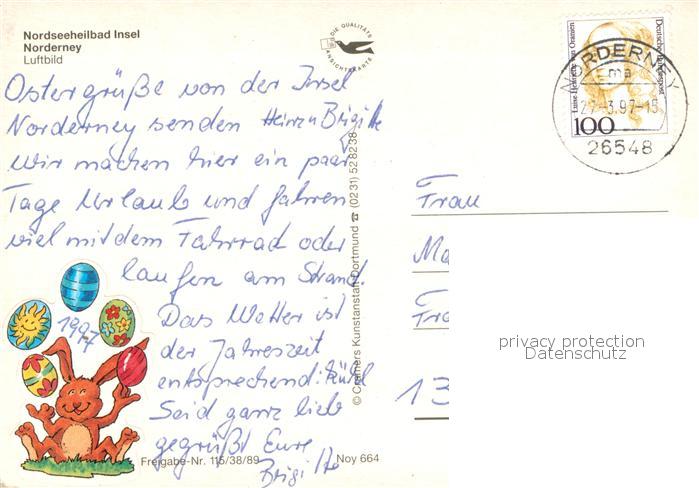 Nordseeheilbad Insel
Norderney
Luftbild
DIE QUALITÄTS
ANSICHTSKARTE
Ostergrüße von der Insel
Norderney senden Heinz u Brigitte
Wir machen hier ein paar
Tage Urlaub und fahren
viel mit dem Fahrrad oder
laufen am Strand.
Das Wetter ist
der Jahreszeit
entsprechend: kühl
Seid ganz lieb
gegrüßt Eure
Brigitte
1997
Freigabe-Nr. 115/38/89
Noy 664
© Cramers Kunstanstalt Dortmund ☎ (0231) 528238
Deutsche Bundespost
Luise Henriette von Oranien
100
NORDERNEY
27-3.97-15
26548
Frau
Ma
Fra
13
privacy protection
Datenschutz